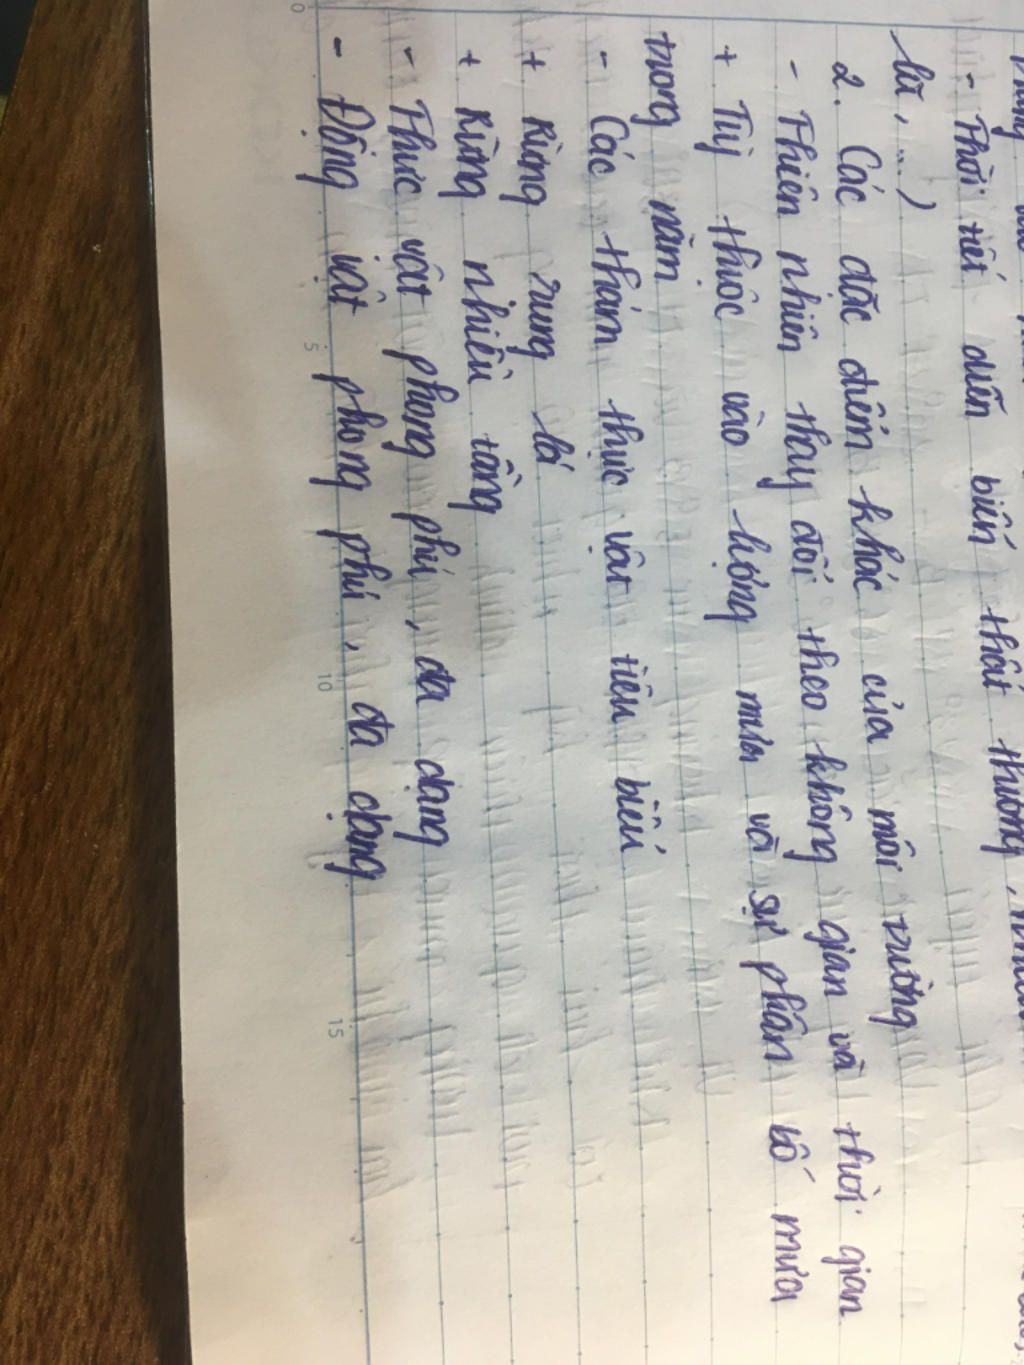 - Thời tiết diễn biến thất thường,
lũ, ...)
2. Các đặc điểm khác của môi trường
- Thiên nhiên thay đổi theo không gian và thời gian
+ Tuỳ thuộc vào lượng mưa và sự phân bố mưa
trong năm
- Các thảm thực vật tiêu biểu
+ Rừng rụng lá
+ Rừng nhiều tầng
- Thực vật phong phú, đa dạng
- Động vật phong phú, đa dạng
0 5 10 15